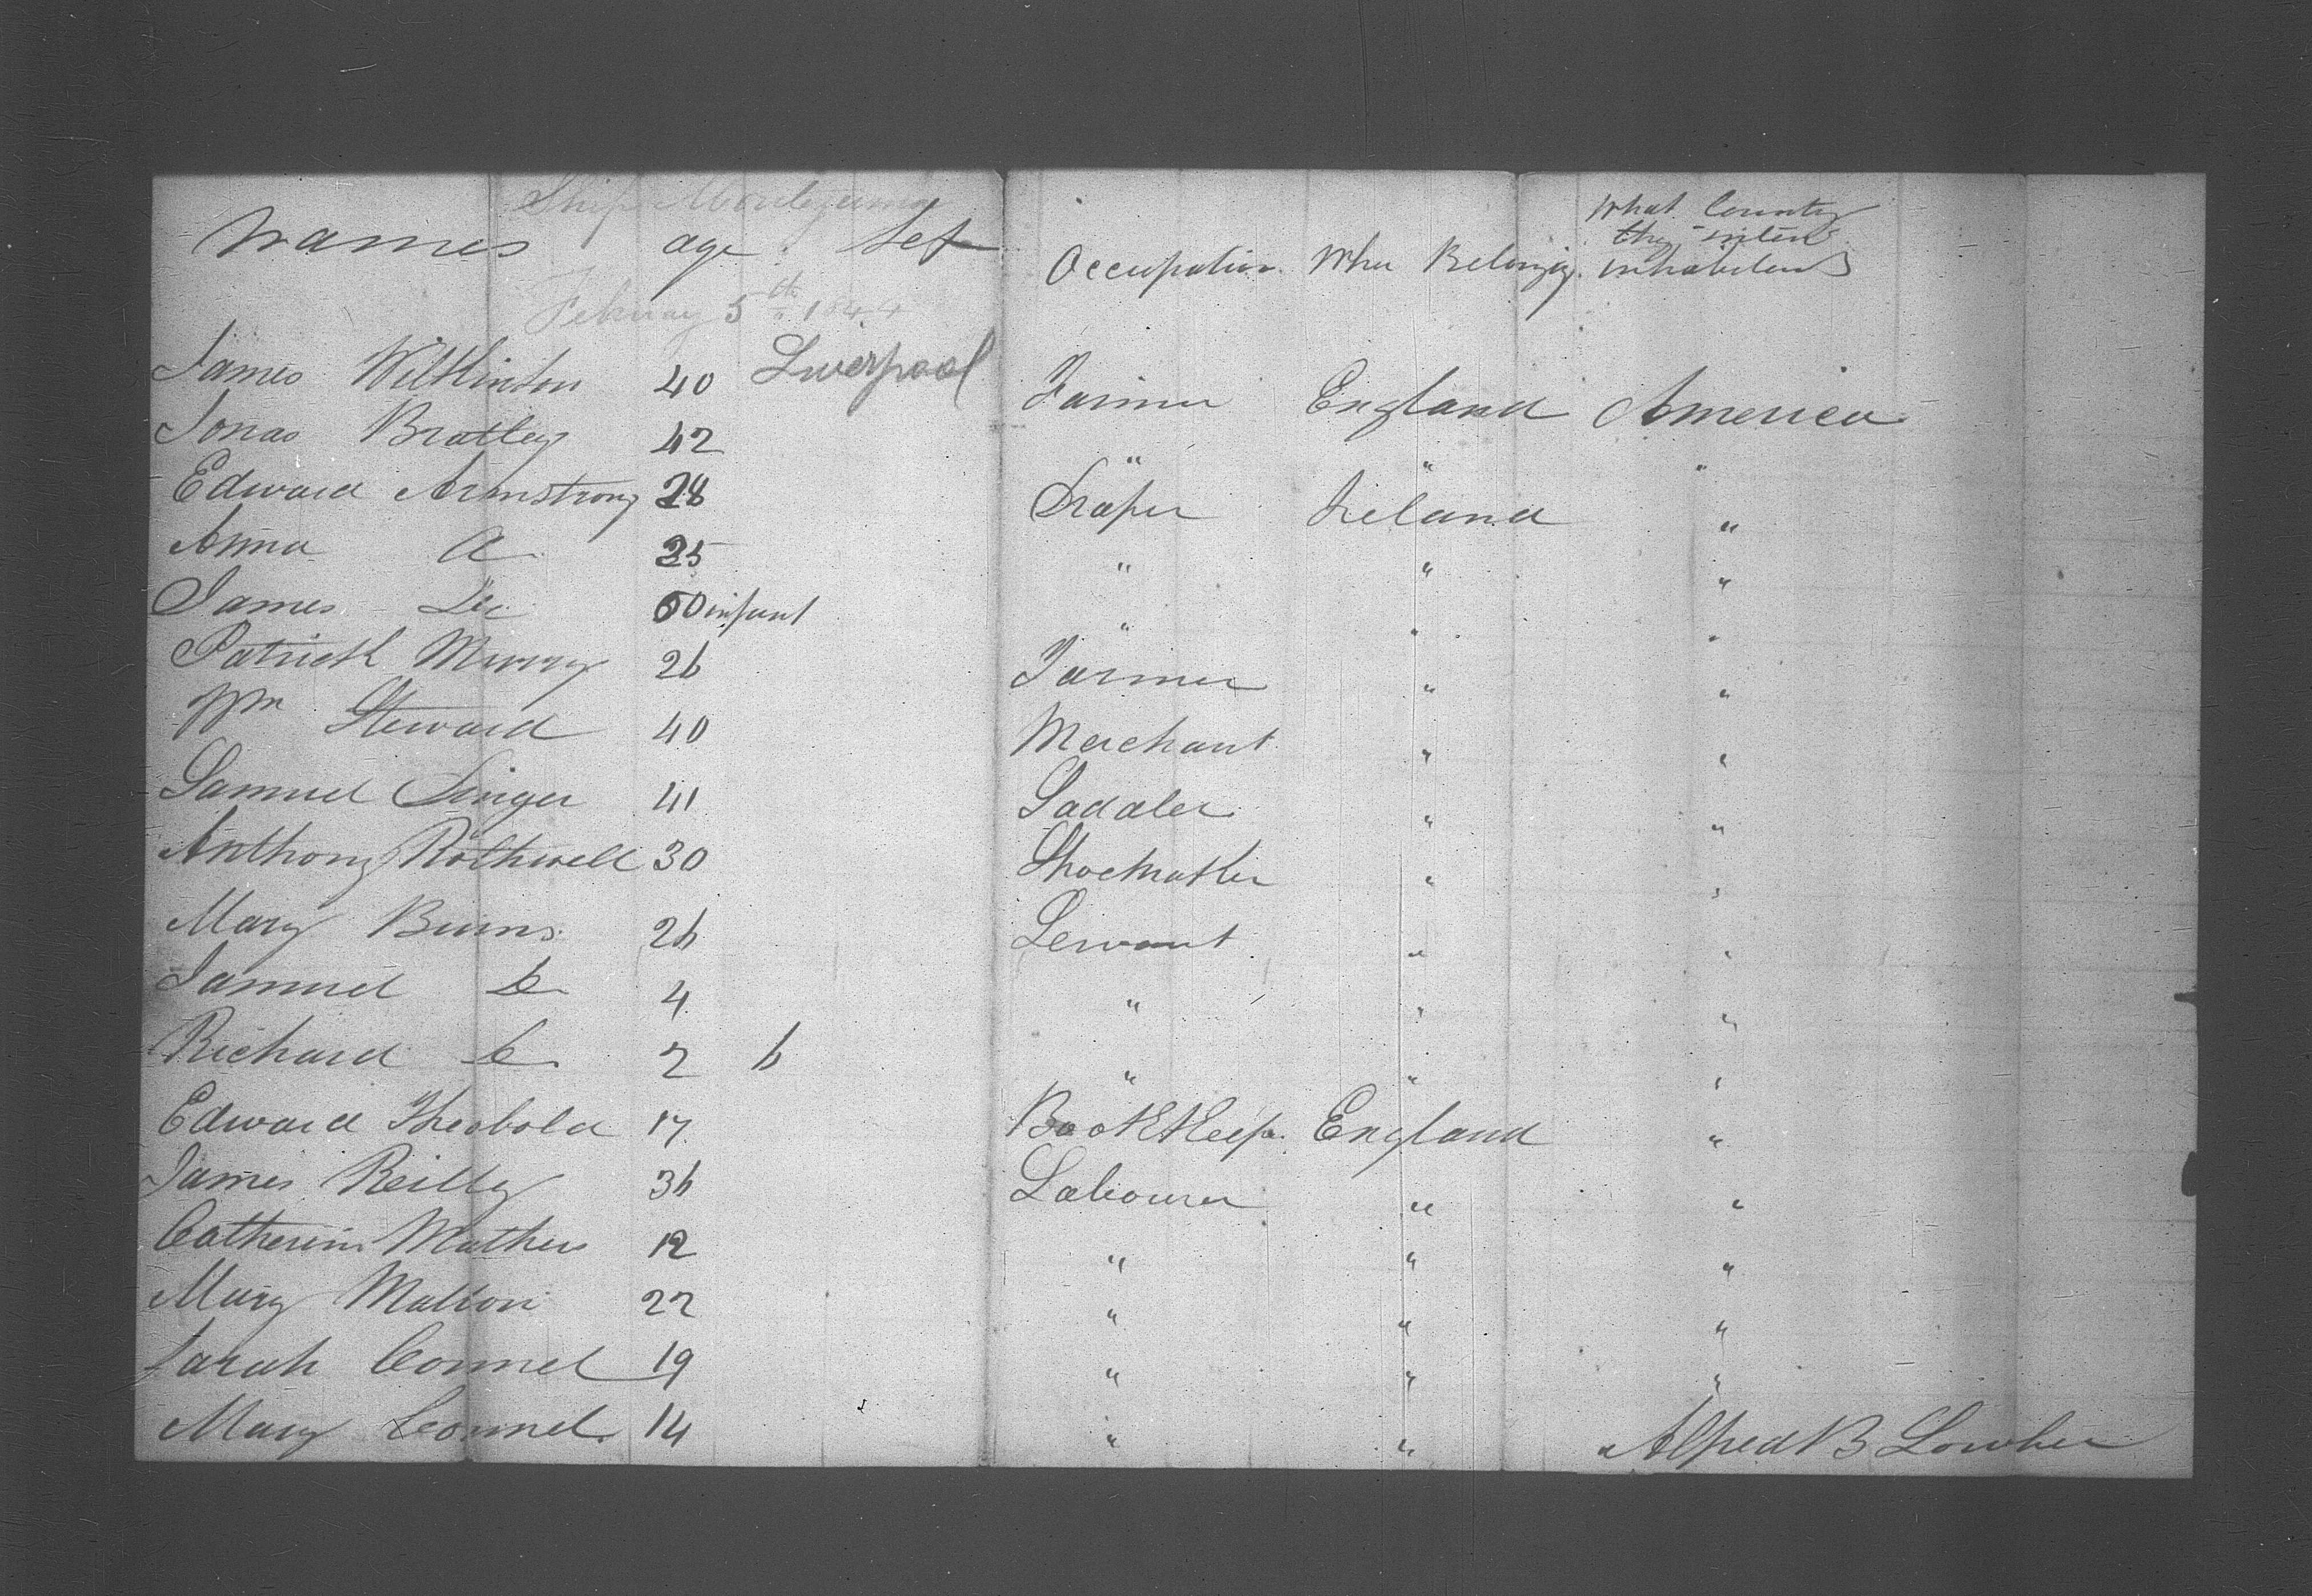 Ship Montezuma
Names age Sex Occupation Wher Belonging What County they inten inhabitens
February 5th 1844
Liverpool
James Wilklinton 40 Farmer England America
Jonas Bratley 42 " " "
Edward Armstrong 28 Draper Ireland "
Anna A 25 " " "
James Do 00 infant " " "
Patrick Murry 26 Farmer " "
Wm Steward 40 Merchant " "
Samuel Singer 41 Sadaler " "
Anthony Rothwell 30 Shoemaker " "
Mary Burns 26 Servant " "
Samuel B 4 " " "
Richard B 2 6 " " "
Edward Theobold 17 Book Keeper England "
James Reilly 36 Labourer " "
Catherin Mathers 12 " " "
Mary Mallon 22 " " "
Sarah Connel 19 " " "
Mary Connel 14 " "
Alfred B Lowber